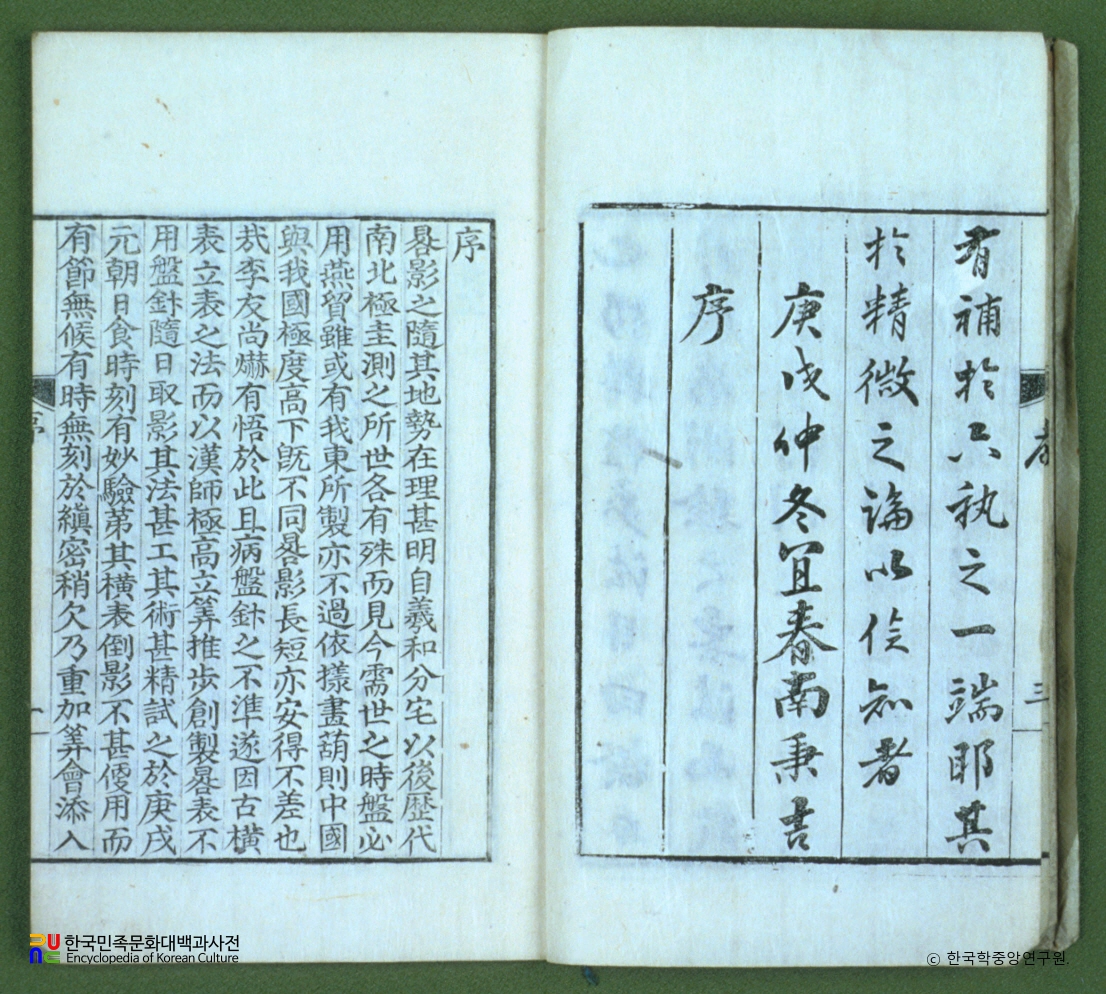 有補於六執之一端耶其
於精微之論以俟知者
庚戌仲冬宜春南秉吉
序
序
三
序
晷影之隨其地勢在理甚明自羲和分宅以後歷代
南北極圭測之所世各有殊而見今需世之時盤必
用燕貿雖或有我東所製亦不過依㨾畫葫則中國
與我國極度高下旣不同晷影長短亦安得不差也
㦲李友尙爀有悟於此且病盤針之不準遂因古橫
表立表之法而以漢師極高立筭推步創製晷表不
用盤針隨日取影其法甚工其術甚精試之於庚戌
元朝日食時刻有妙驗第其橫表倒影不甚便用而
有節無候有時無刻於縝密稍欠乃重加筭會添入
序
一
한국민족문화대백과사전
Encyclopedia of Korean Culture
© 한국학중앙연구원.